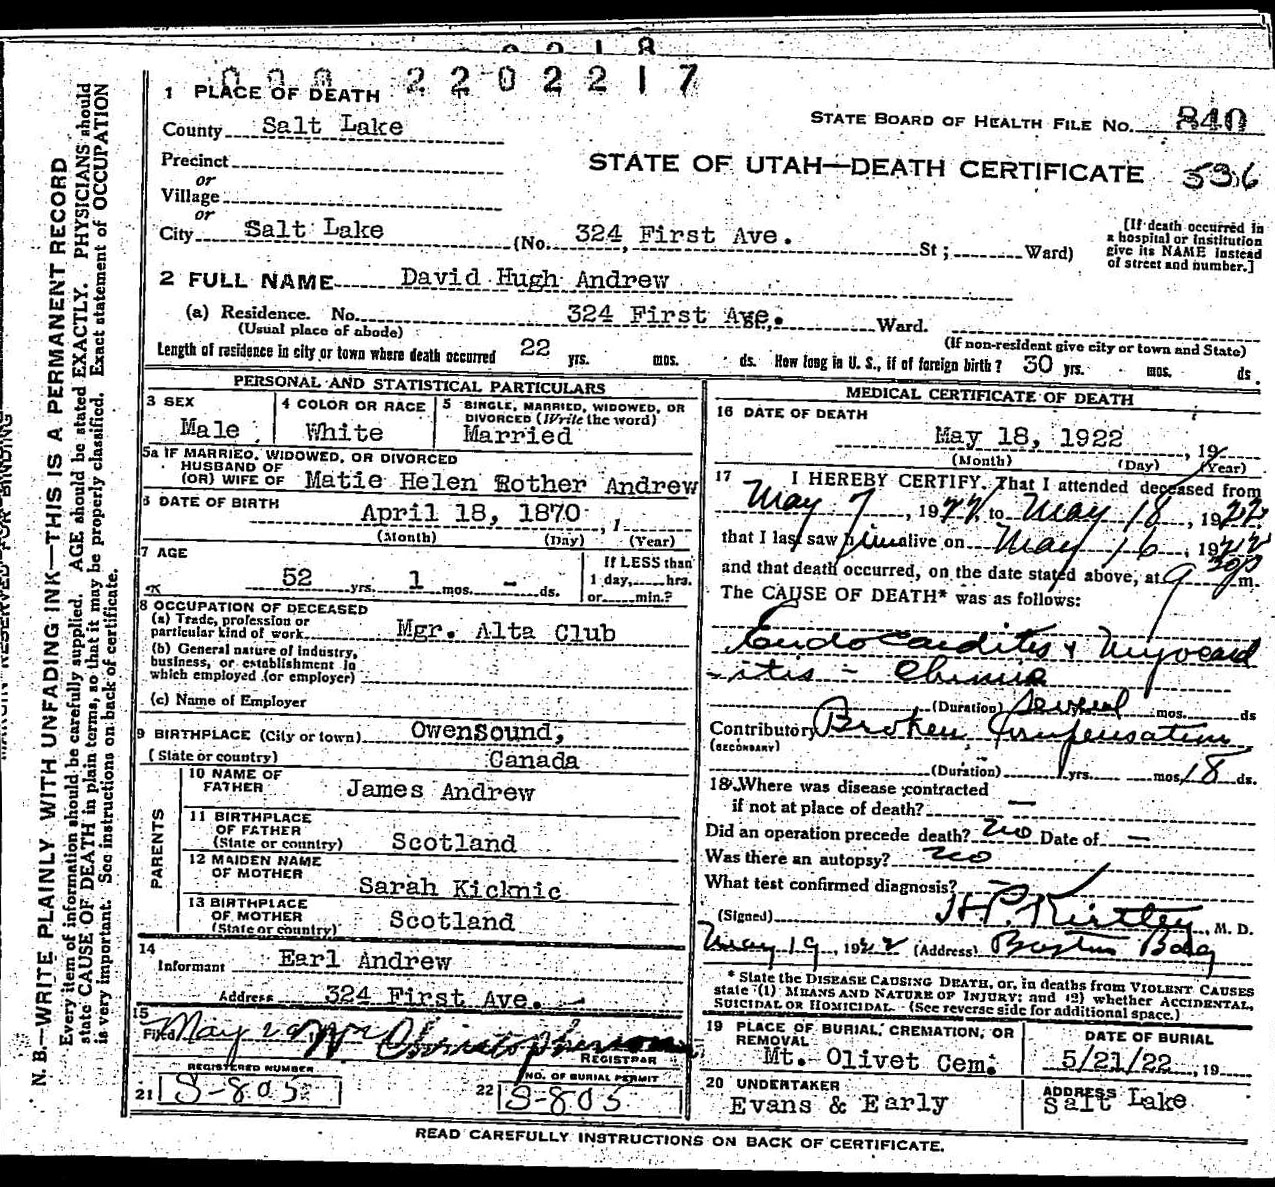 2202217
1 PLACE OF DEATH
STATE BOARD OF HEALTH FILE No. 840
County Salt Lake
STATE OF UTAH—DEATH CERTIFICATE 536
Precinct
or
Village
or
City Salt Lake (No. 324 First Ave. St; Ward)
[If death occurred in
a hospital or institution
give its NAME instead
of street and number.]
2 FULL NAME David Hugh Andrew
(a) Residence. No. 324 First Ave. Ward.
(Usual place of abode) (If non-resident give city or town and State)
Length of residence in city or town where death occurred 22 yrs. mos. ds. How long in U. S., if of foreign birth? 30 yrs. mos. ds.
PERSONAL AND STATISTICAL PARTICULARS
3 SEX
Male
4 COLOR OR RACE
White
5 SINGLE, MARRIED, WIDOWED, OR
DIVORCED (Write the word)
Married
5a IF MARRIED, WIDOWED, OR DIVORCED
HUSBAND OF
(OR) WIFE OF Matie Helen Rother Andrew
6 DATE OF BIRTH April 18, 1870, 1
(Month) (Day) (Year)
7 AGE
52 yrs. 1 mos. - ds.
If LESS than
1 day, hrs.
or min.?
8 OCCUPATION OF DECEASED
(a) Trade, profession or
particular kind of work Mgr. Alta Club
(b) General nature of industry,
business, or establishment in
which employed (or employer)
(c) Name of Employer
9 BIRTHPLACE (City or town) OwenSound,
(State or country) Canada
PARENTS
10 NAME OF
FATHER James Andrew
11 BIRTHPLACE
OF FATHER
(State or country) Scotland
12 MAIDEN NAME
OF MOTHER Sarah Kicknic
13 BIRTHPLACE
OF MOTHER
(State or country) Scotland
14
Informant Earl Andrew
Address 324 First Ave.
15
Filed May
REGISTRAR
REGISTERED NUMBER
21 S-805
NO. OF BURIAL PERMIT
22 S-805
MEDICAL CERTIFICATE OF DEATH
16 DATE OF DEATH
May 18, 1922, 19
(Month) (Day) (Year)
17 I HEREBY CERTIFY, That I attended deceased from
May 7, 1922 to May 18, 1922
that I last saw him alive on May 16, 1922
and that death occurred, on the date stated above, at 9 30p m.
The CAUSE OF DEATH* was as follows:
Endocarditis & Myocard
-itis - Chronic
(Duration) several mos. ds
Contributory Broken Compensation
(SECONDARY)
(Duration) yrs. mos. 18 ds.
18 Where was disease contracted
if not at place of death? —
Did an operation precede death? no Date of —
Was there an autopsy? no
What test confirmed diagnosis? —
(Signed) H.P. Kirtley, M. D.
May 19, 1922 (Address) Boston Bldg
* State the DISEASE CAUSING DEATH, or, in deaths from VIOLENT CAUSES
state (1) MEANS AND NATURE OF INJURY; and (2) whether ACCIDENTAL,
SUICIDAL OR HOMICIDAL. (See reverse side for additional space.)
19 PLACE OF BURIAL, CREMATION, OR
REMOVAL
Mt. Olivet Cem.
DATE OF BURIAL
5/21/22, 19
20 UNDERTAKER
Evans & Early
ADDRESS
Salt Lake
READ CAREFULLY INSTRUCTIONS ON BACK OF CERTIFICATE.
N. B.—WRITE PLAINLY WITH UNFADING INK—THIS IS A PERMANENT RECORD
Every item of information should be carefully supplied. AGE should be stated EXACTLY. PHYSICIANS should
state CAUSE OF DEATH in plain terms, so that it may be properly classified. Exact statement of OCCUPATION
is very important. See instructions on back of certificate.